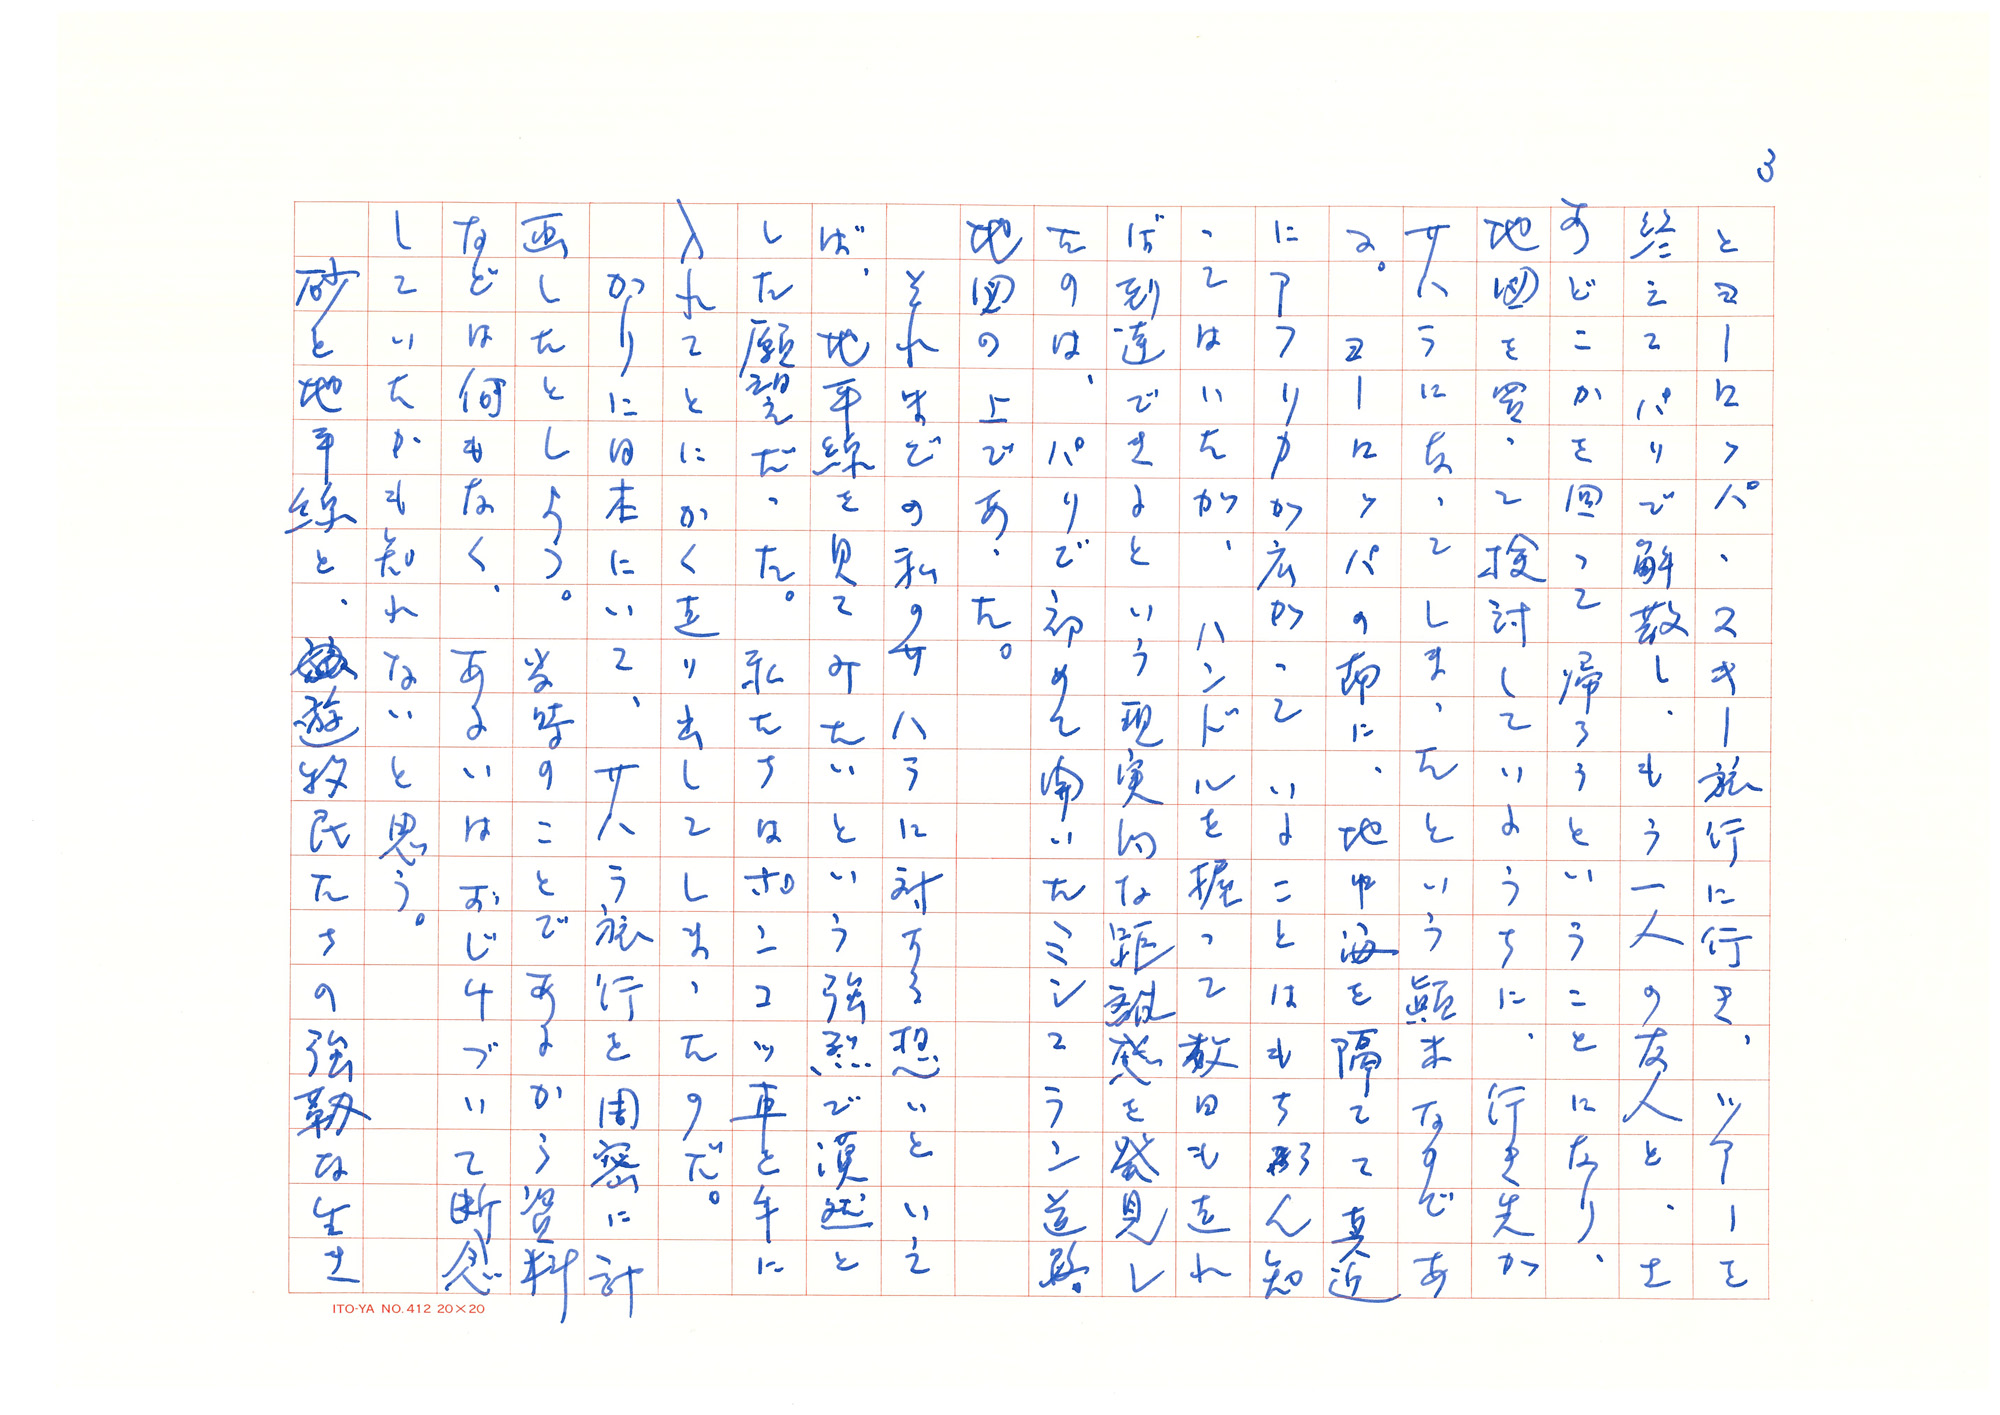 3
とヨーロッパ、スキー旅行に行き、ツアーを
終えてパリで解散し、もう一人の友人と、さ
あどこかを回って帰ろうということになり、
地図を買って検討しているうちに、行き先が
サハラになってしまったという顛末なのであ
る。ヨーロッパの南に、地中海を隔てて真近
にアフリカが広がっていることはもちろん知
ってはいたが、ハンドルを握って数日も走れ
ば到達できるという現実的な距離感を発見し
たのは、パリで初めて開いたミシュラン道路
地図の上であった。
それまでの私のサハラに対する想いといえ
ば、地平線を見てみたいという強烈で漠然と
した願望だった。私たちはポンコツ車を手に
入れてとにかく走り出してしまったのだ。
かりに日本にいて、サハラ旅行を周密に計
画したとしよう。当時のことであるから資料
などは何もなく、あるいはおじケづいて断念
していたかも知れないと思う。
砂と地平線と、遊牧民たちの強靭な生き
ITO-YA NO.412 20×20